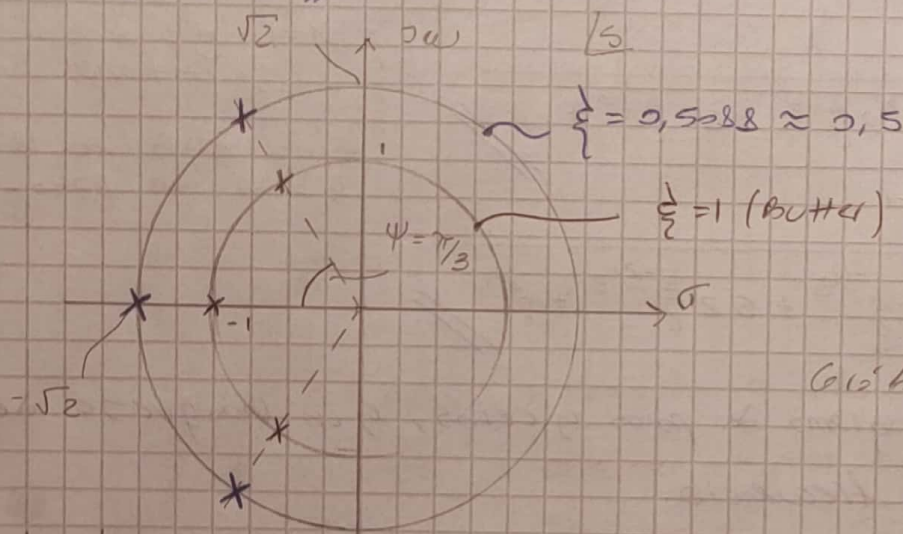 √2
jω
S
ξ = 0,5088 ≈ 0,5
1
ξ = 1 (Butter)
Ψ = π/3
σ
-1
-√2